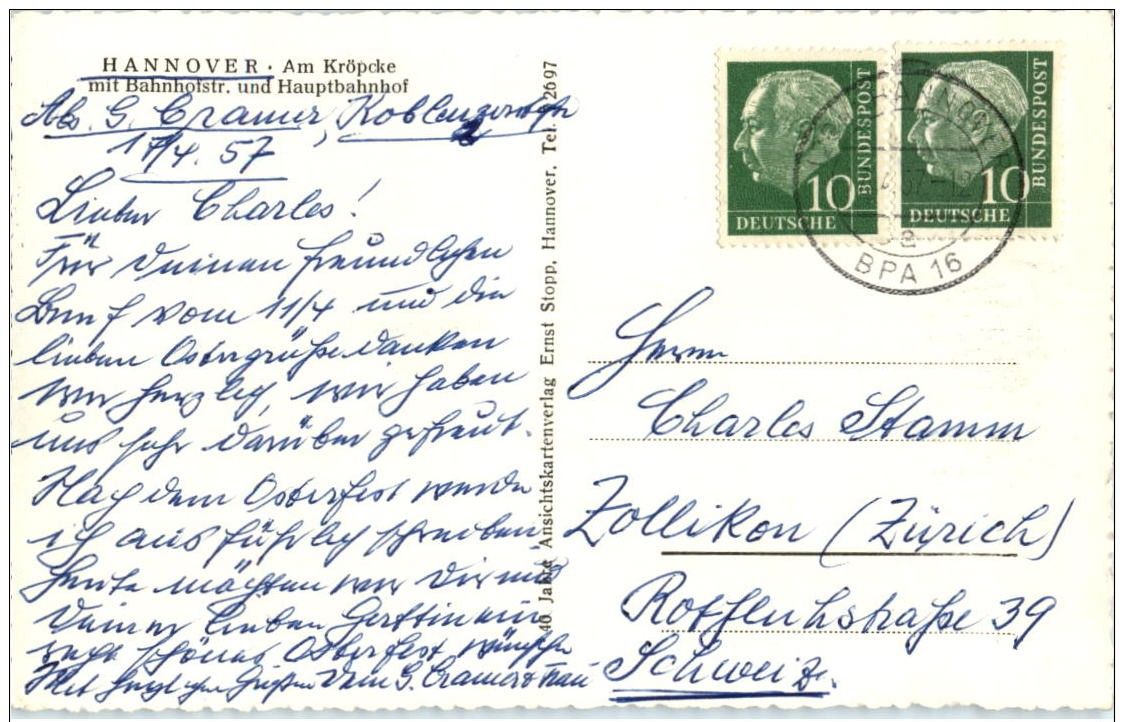 HANNOVER · Am Kröpcke
mit Bahnhofstr. und Hauptbahnhof
Abs. G. Cramer, Koblenzerstr. 2
17/4. 57
Lieber Charles!
Für Deinen freundlichen
Brief vom 11/4 und die
lieben Ostergrüße danken
wir herzlich, wir haben
uns sehr darüber gefreut.
Nach dem Osterfest werde
ich ausführlich schreiben
heute möchten wir Dir und
Deiner lieben Gattin ein
recht schönes Osterfest wünschen
Mit herzlichen Grüßen Dein G. Cramer & Frau
40 Jahre Ansichtskartenverlag Ernst Stopp, Hannover, Tel. 2697
DEUTSCHE BUNDESPOST 10
DEUTSCHE BUNDESPOST 10
HANNOVER
57-12
a
BPA 16
Herrn
Charles Stamm
Zollikon (Zürich)
Rotfluhstraße 39
Schweiz.